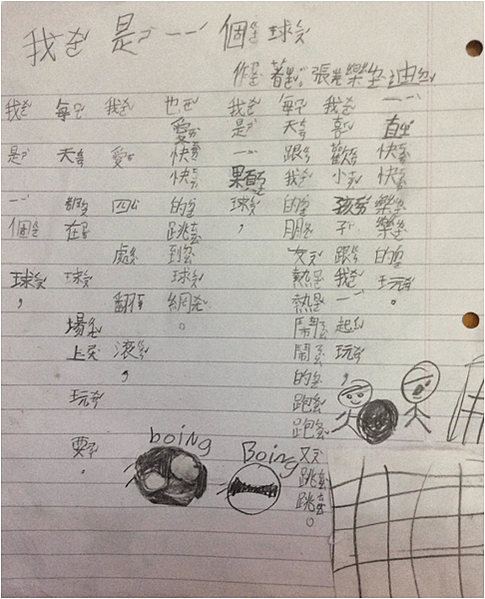 我是一個球
作者:張樂迪
我是一個球,
每天都在球場上玩耍。
我愛四處翻滾,
也愛快快的跳到球網。
我是一顆球,
每天跟我的朋友熱熱鬧鬧的跑跑又跳跳。
我喜歡小孩子跟我一起玩,
一直快快樂樂的玩。
boing
Boing